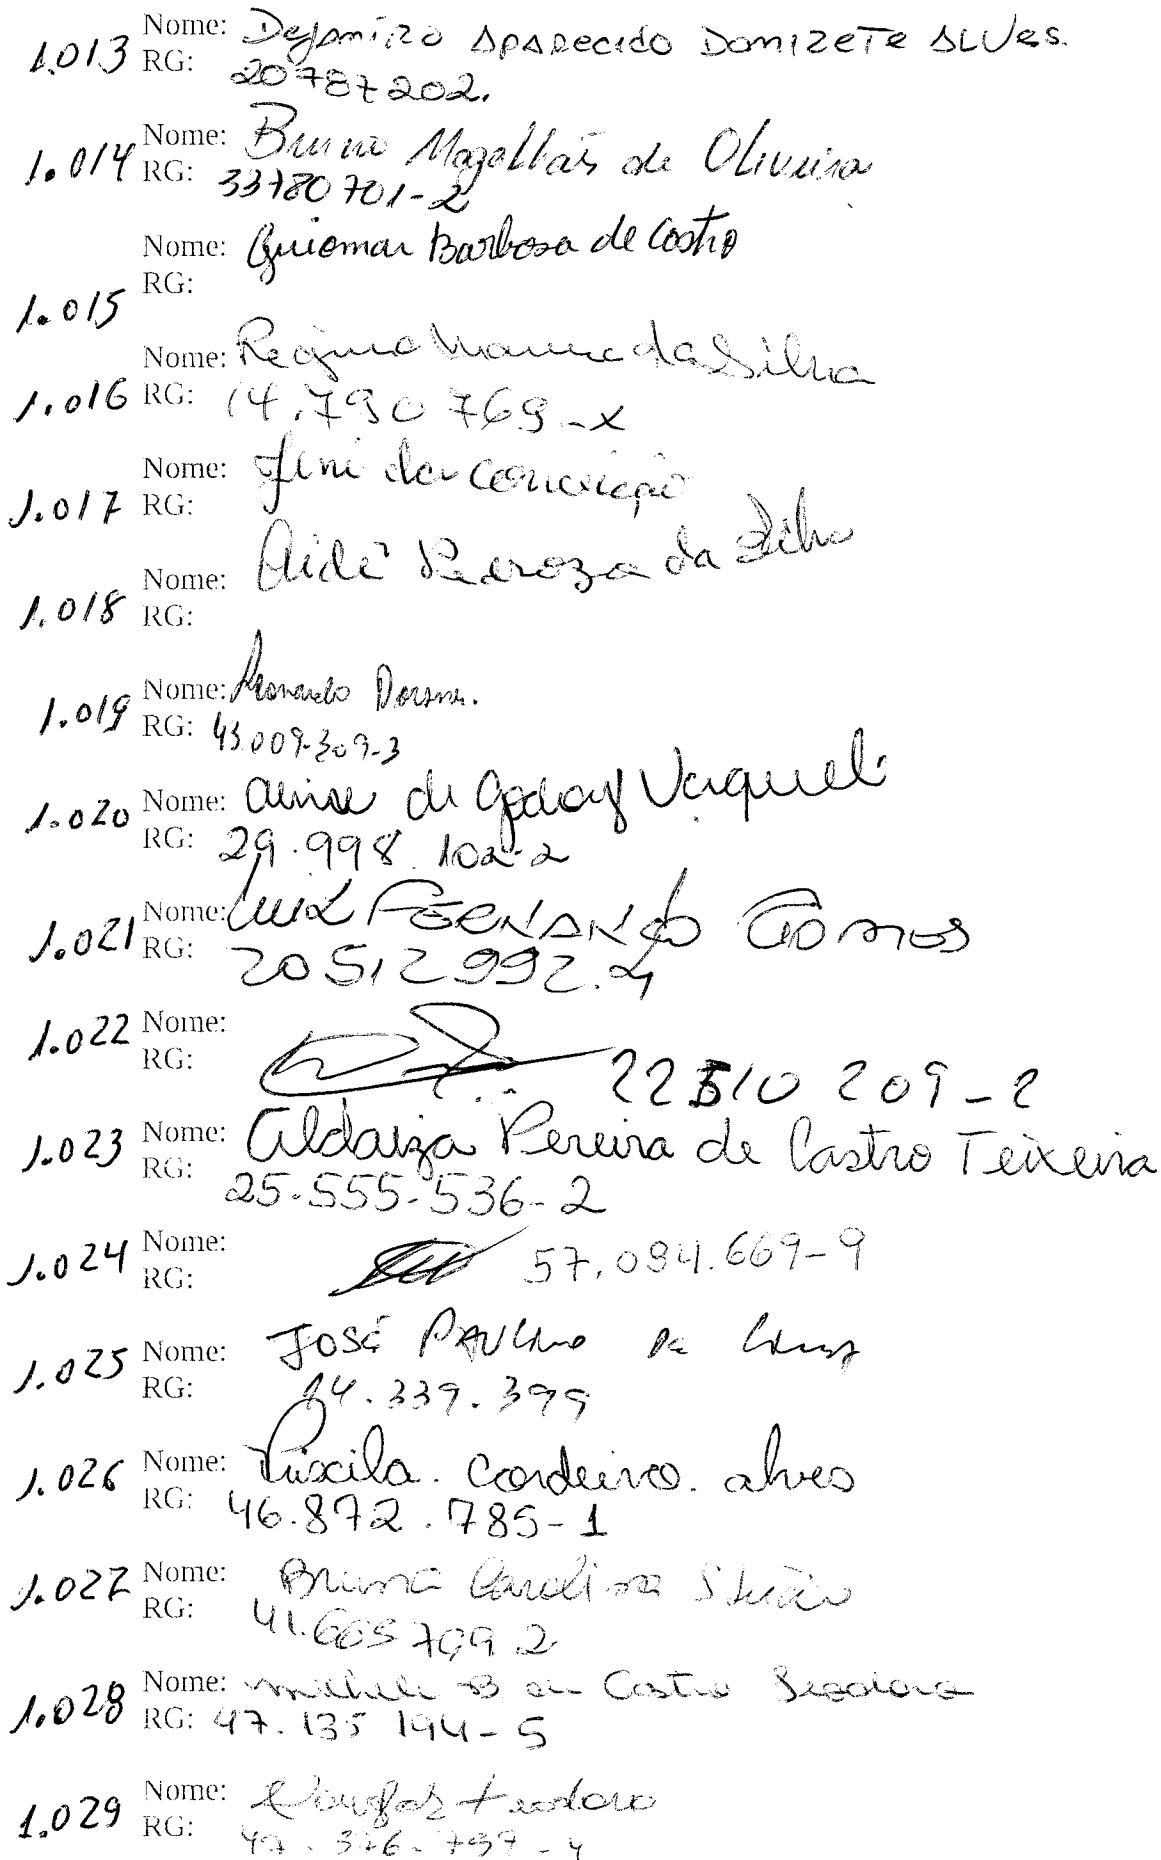 1.013 Nome: Dejamizo Aparecido Domizete Alves.
RG: 20787202.
1.014 Nome: Bruno Magalhães de Oliveira
RG: 33780701-2
Nome: Guiomar Barbosa de Castro
1.015 RG:
Nome: Regina da Silva
1.016 RG: 14.790769-x
Nome: da Conceição
1.017 RG:
Nome: Aidê Peroza da Silva
1.018 RG:
1.019 Nome: Leonardo
RG: 43.009-309-3
1.020 Nome: de Godoy
RG: 29.998.102-2
1.021 Nome: Luiz FERNANDO Gomes
RG: 20512992.4
1.022 Nome:
RG: 22510209-2
1.023 Nome: Aldaiza Pereira de Castro Teixeira
RG: 25.555-536-2
1.024 Nome:
RG: 57.094.669-9
1.025 Nome: JOSÉ PAULINO DA
RG: 14.339.399
1.026 Nome: Priscila. Cordeiro. alves
RG: 46.872.785-1
1.027 Nome: Bruna Carolina
RG: 41.665799 2
1.028 Nome: B de Castro
RG: 47.135 194-5
1.029 Nome: Douglas teodoro
RG: 47.376.797-4